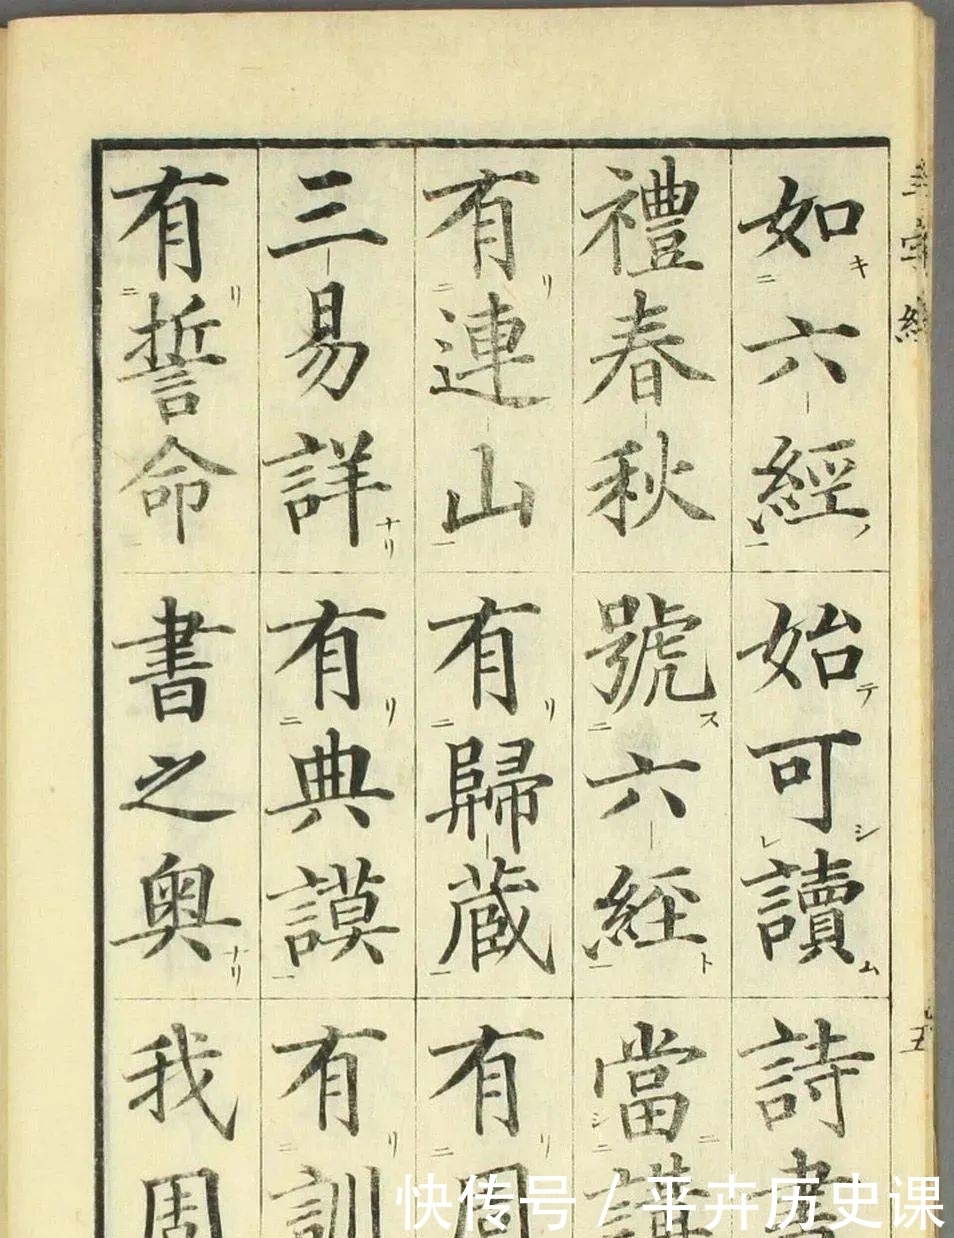 如六經始可讀詩書
禮春秋號六經當講
有連山有歸蔵有周
三易詳有典謨有訓
有誓命書之奥我周
五
快传号 / 平卉历史课